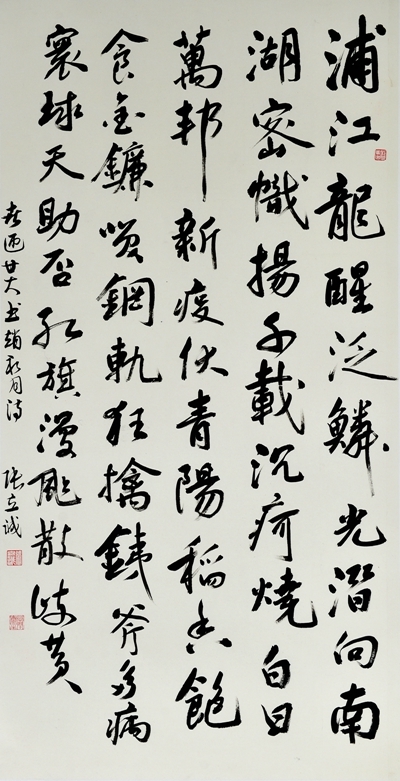 浦江龍醒泛鱗光潛向南
湖密幟揚千載沉疴燒白日
萬邦新疫伏青陽稻香飽
食金鐮鋼軌狂擒銕斧多病
寰球天助否紅旗漫颭散黃
喜迎廿大書趙詩 張立誠